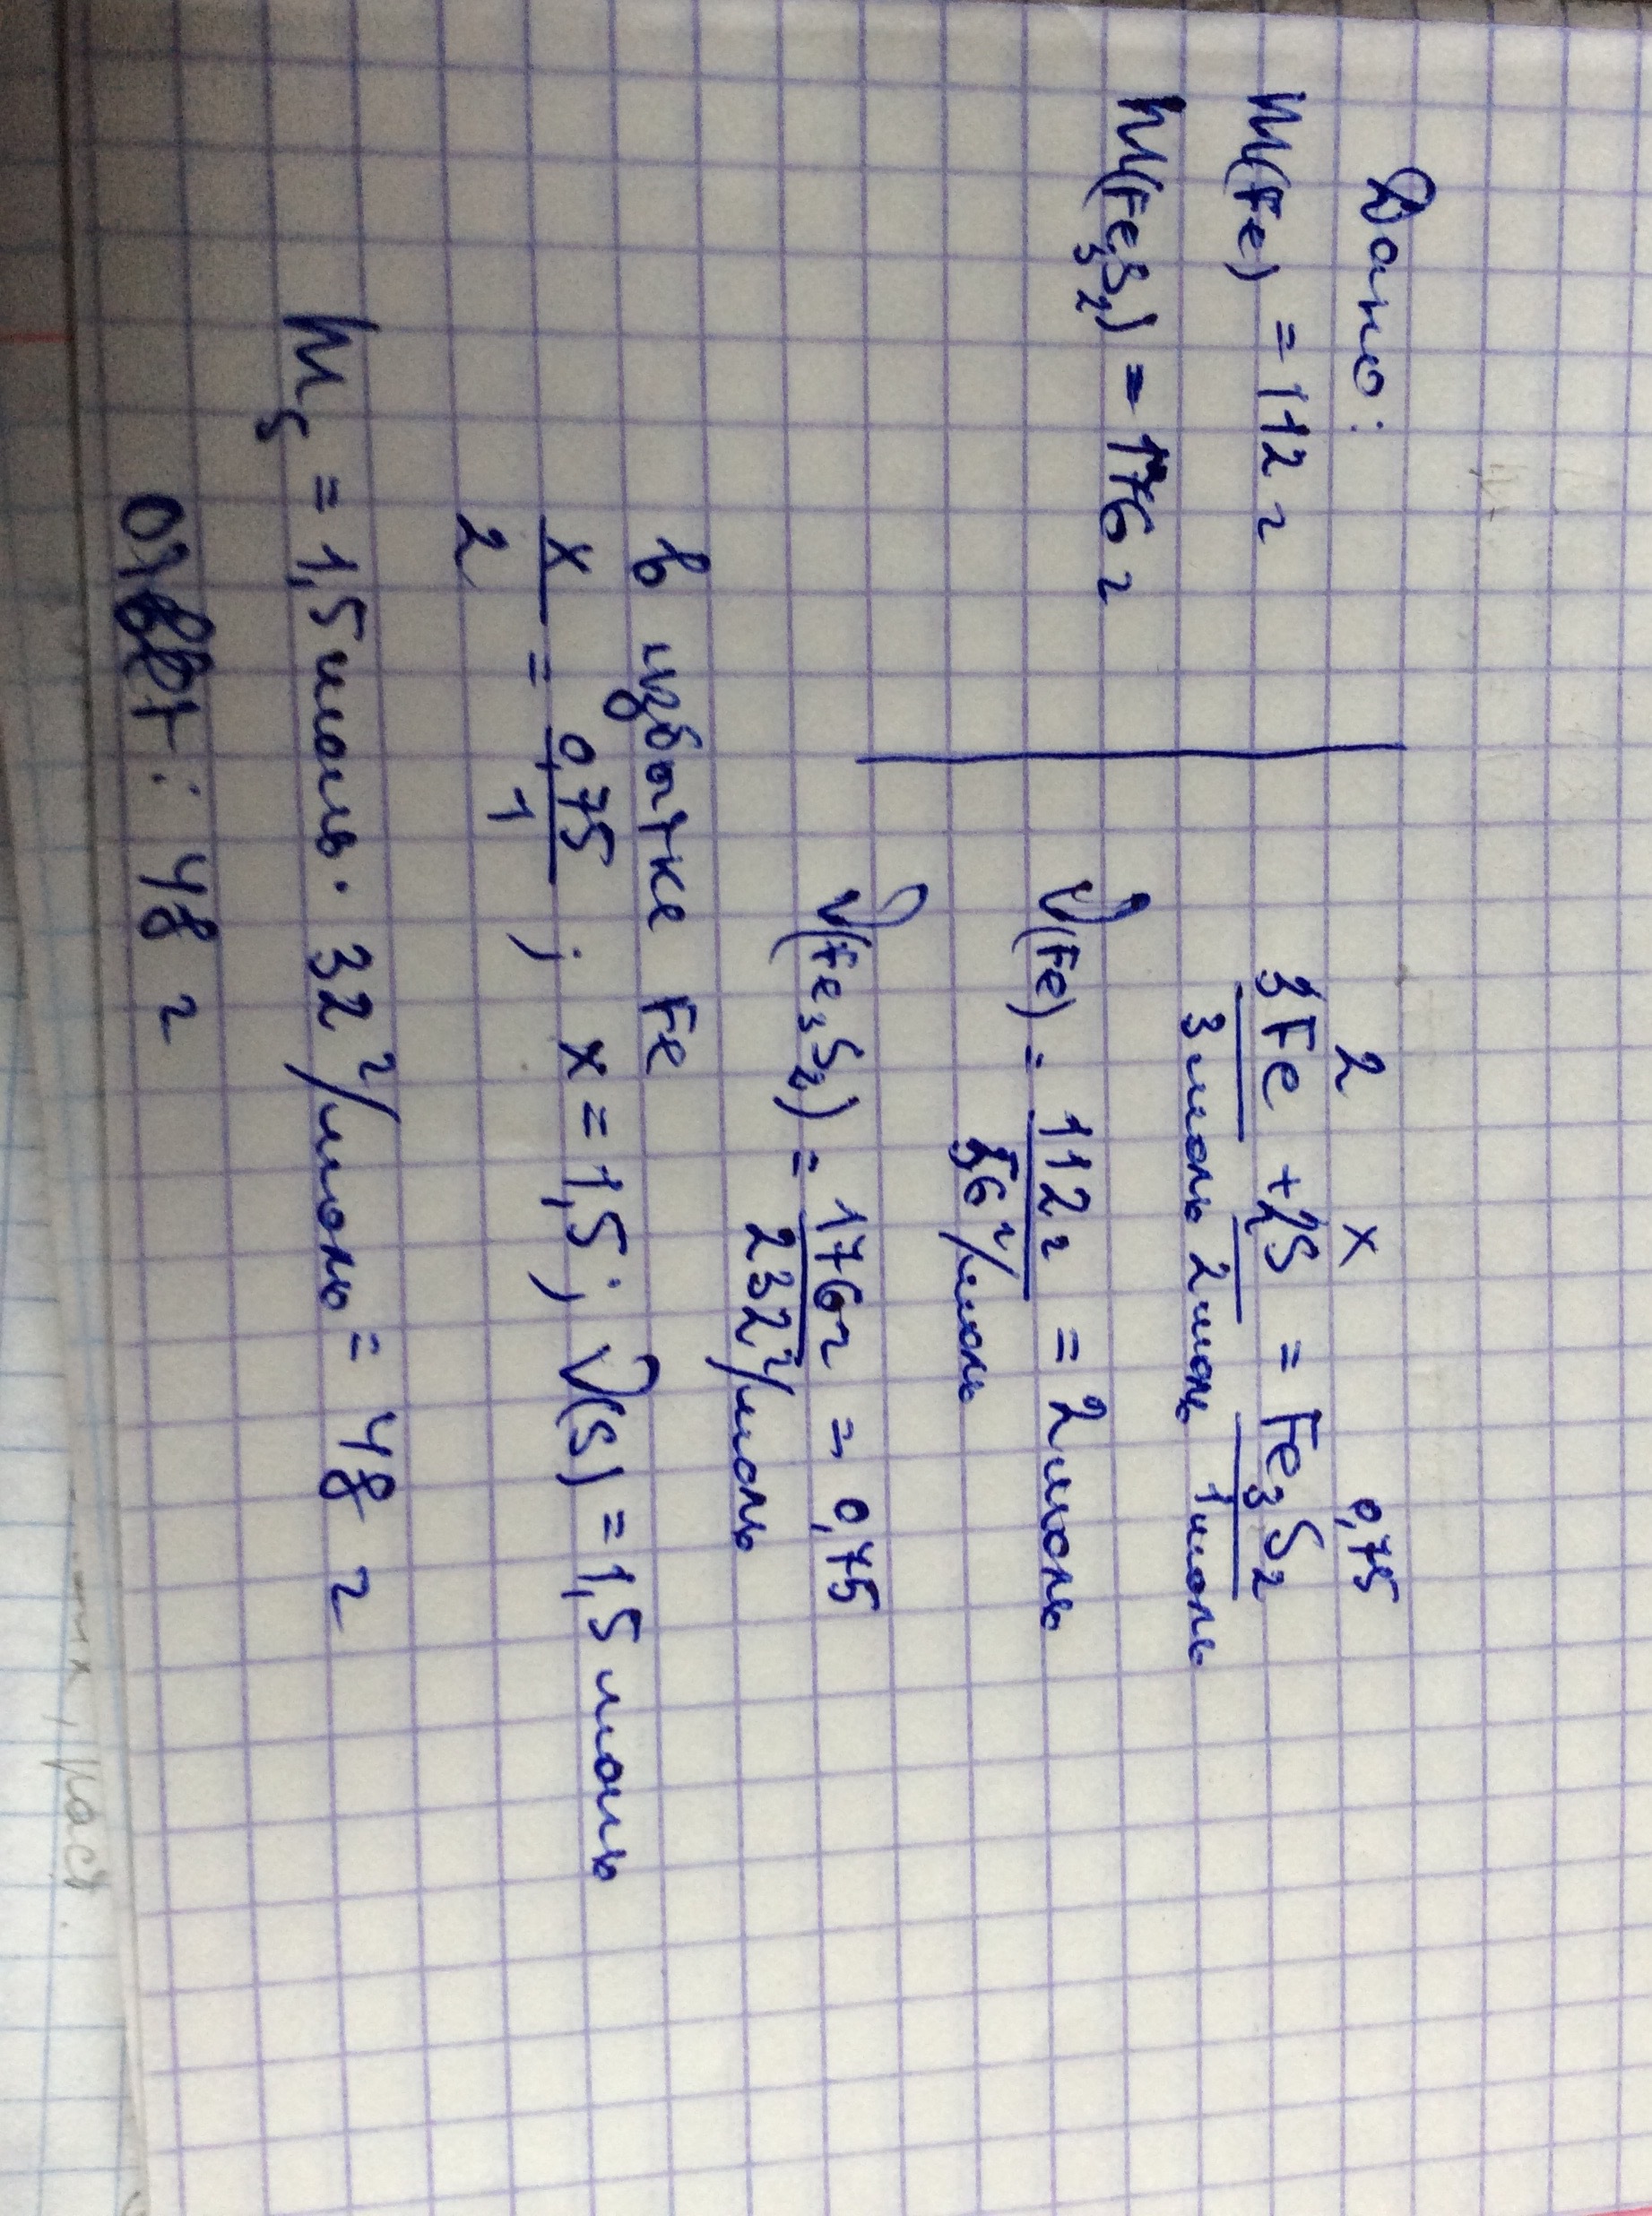 Дано:
m(Fe) = 112 г
m(Fe3S2) = 176 г
2 x 0,75
3Fe + 2S = Fe3S2
3 моль 2 моль 1 моль
ν(Fe) = 112 г / 56 г/моль = 2 моль
ν(Fe3S2) = 176 г / 232 г/моль = 0,75
в избытке Fe
x/2 = 0,75/1 ; x = 1,5 ; ν(S) = 1,5 моль
mS = 1,5 моль · 32 г/моль = 48 г
Ответ: 48 г